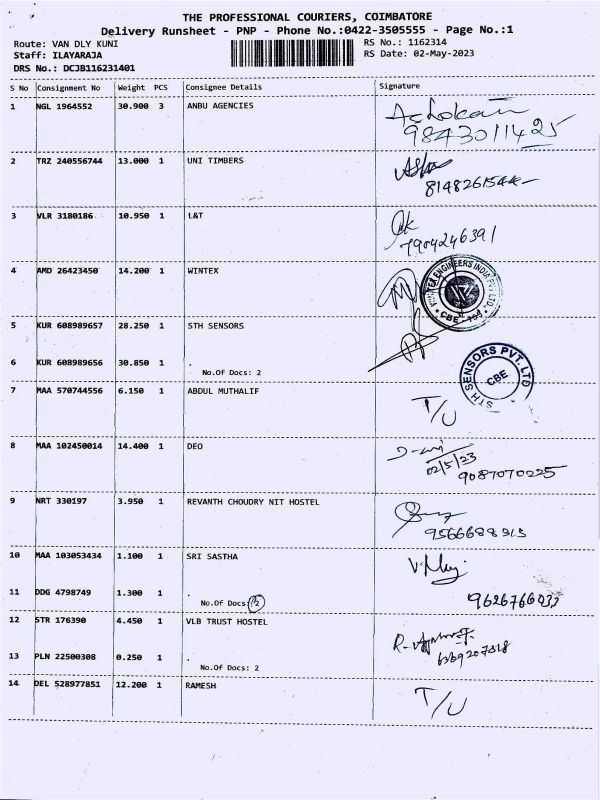 THE PROFESSIONAL COURIERS, COIMBATORE
Delivery Runsheet - PNP - Phone No.:0422-3505555 - Page No.:1
Route: VAN DLY KUNI RS No.: 1162314
Staff: ILAYARAJA RS Date: 02-May-2023
DRS No.: DCJB116231401
S No Consignment No Weight PCS Consignee Details Signature
1 NGL 1964552 30.900 3 ANBU AGENCIES Ashokan
9843011425
2 TRZ 240556744 13.000 1 UNI TIMBERS
3 VLR 3180186 10.950 1 L&T
7904246391
4 AMD 26423450 14.200 1 WINTEX
ENGINEERS INDIA PVT LTD.
CBE
5 KUR 608989657 28.250 1 STH SENSORS
6 KUR 608989656 30.850 1 .
No.Of Docs: 2
STH SENSORS PVT. LTD
CBE
7 MAA 570744556 6.150 1 ABDUL MUTHALIF T/U
8 MAA 102450014 14.400 1 DEO
02/5/23
9087070225
9 NRT 330197 3.950 1 REVANTH CHOUDRY NIT HOSTEL
9566688313
10 MAA 103053434 1.100 1 SRI SASTHA
11 DDG 4798749 1.300 1 .
No.Of Docs: 2
12 STR 176390 4.450 1 VLB TRUST HOSTEL
13 PLN 22500308 0.250 1 .
No.Of Docs: 2
14 DEL 528977851 12.200 1 RAMESH T/U